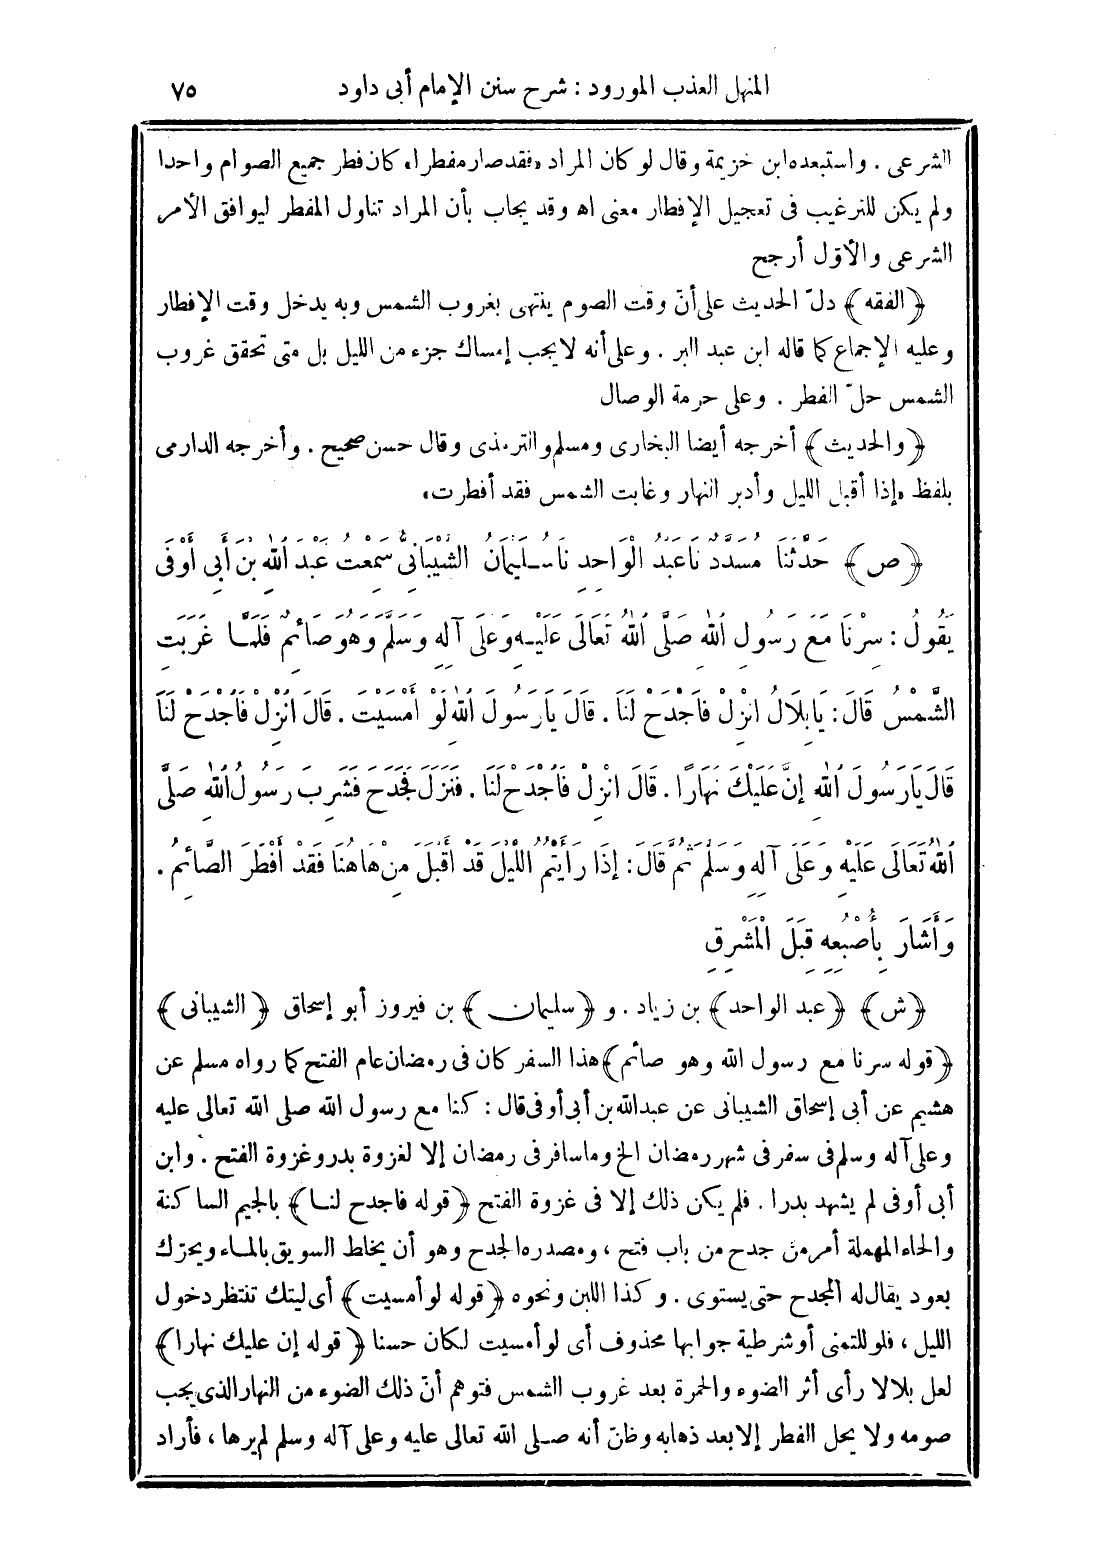 المنهل العذب المورود : شرح سنن الإمام أبى داود
٧٥
الشرعى . واستبعده ابن خزيمة وقال لو كان المراد «فقد صار مفطرا» كان فطر جميع الصوام واحدا
ولم يكن للترغيب فى تعجيل الإفطار معنى اه وقد يجاب بأن المراد تناول المفطر ليوافق الأمر
الشرعى والأوّل أرجح
﴿الفقه﴾ دلّ الحديث على أنّ وقت الصوم ينتهى بغروب الشمس وبه يدخل وقت الإفطار
وعليه الإجماع كما قاله ابن عبد البر . وعلى أنه لا يجب إمساك جزء من الليل بل متى تحقق غروب
الشمس حلّ الفطر . وعلى حرمة الوصال
﴿والحديث﴾ أخرجه أيضا البخارى ومسلم والترمذى وقال حسن صحيح . وأخرجه الدارمى
بلفظ «إذا أقبل الليل وأدبر النهار وغابت الشمس فقد أفطرت»
﴿ص﴾ حَدَّثَنَا مُسَدَّدٌ نَا عَبْدُ الْوَاحِدِ نَا سُلَيْمَانُ الشَّيْبَانِيُّ سَمِعْتُ عَبْدَ اللهِ بْنَ أَبِي أَوْفَى
يَقُولُ : سِرْنَا مَعَ رَسُولِ اللهِ صَلَّى اللهُ تَعَالَى عَلَيْهِ وَعَلَى آلِهِ وَسَلَّمَ وَهُوَ صَائِمٌ فَلَمَّا غَرَبَتِ
الشَّمْسُ قَالَ : يَا بِلَالُ انْزِلْ فَاجْدَحْ لَنَا . قَالَ يَا رَسُولَ اللهِ لَوْ أَمْسَيْتَ . قَالَ انْزِلْ فَاجْدَحْ لَنَا
قَالَ يَا رَسُولَ اللهِ إِنَّ عَلَيْكَ نَهَارًا . قَالَ انْزِلْ فَاجْدَحْ لَنَا . فَنَزَلَ فَجَدَحَ فَشَرِبَ رَسُولُ اللهِ صَلَّى
اللهُ تَعَالَى عَلَيْهِ وَعَلَى آلِهِ وَسَلَّمَ ثُمَّ قَالَ : إِذَا رَأَيْتُمُ اللَّيْلَ قَدْ أَقْبَلَ مِنْ هَاهُنَا فَقَدْ أَفْطَرَ الصَّائِمُ .
وَأَشَارَ بِأُصْبُعِهِ قِبَلَ الْمَشْرِقِ
﴿ش﴾ ﴿عبد الواحد﴾ بن زياد . و ﴿سليمان﴾ بن فيروز أبو إسحاق ﴿الشيبانى﴾
﴿قوله سرنا مع رسول الله وهو صائم﴾ هذا السفر كان فى رمضان عام الفتح كما رواه مسلم عن
هشيم عن أبى إسحاق الشيبانى عن عبد الله بن أبى أوفى قال : كنا مع رسول الله صلى الله تعالى عليه
وعلى آله وسلم فى سفر فى شهر رمضان الخ وما سافر فى رمضان إلا لغزوة بدر وغزوة الفتح . وابن
أبى أوفى لم يشهد بدرا . فلم يكن ذلك إلا فى غزوة الفتح ﴿قوله فاجدح لنا﴾ بالجيم الساكنة
والحاء المهملة أمر من جدح من باب فتح ، ومصدره الجدح وهو أن يخلط السويق بالماء ويحرّك
بعود يقال له المجدح حتى يستوى . وكذا اللبن ونحوه ﴿قوله لو أمسيت﴾ أى ليتك تنتظر دخول
الليل ، فلو للتمنى أو شرطية جوابها محذوف أى لو أمسيت لكان حسنا ﴿قوله إن عليك نهارا﴾
لعل بلالا رأى أثر الضوء والحمرة بعد غروب الشمس فتوهم أنّ ذلك الضوء من النهار الذى يجب
صومه ولا يحل الفطر إلا بعد ذهابه وظنّ أنه صلى الله تعالى عليه وعلى آله وسلم لم يرها ، فأراد